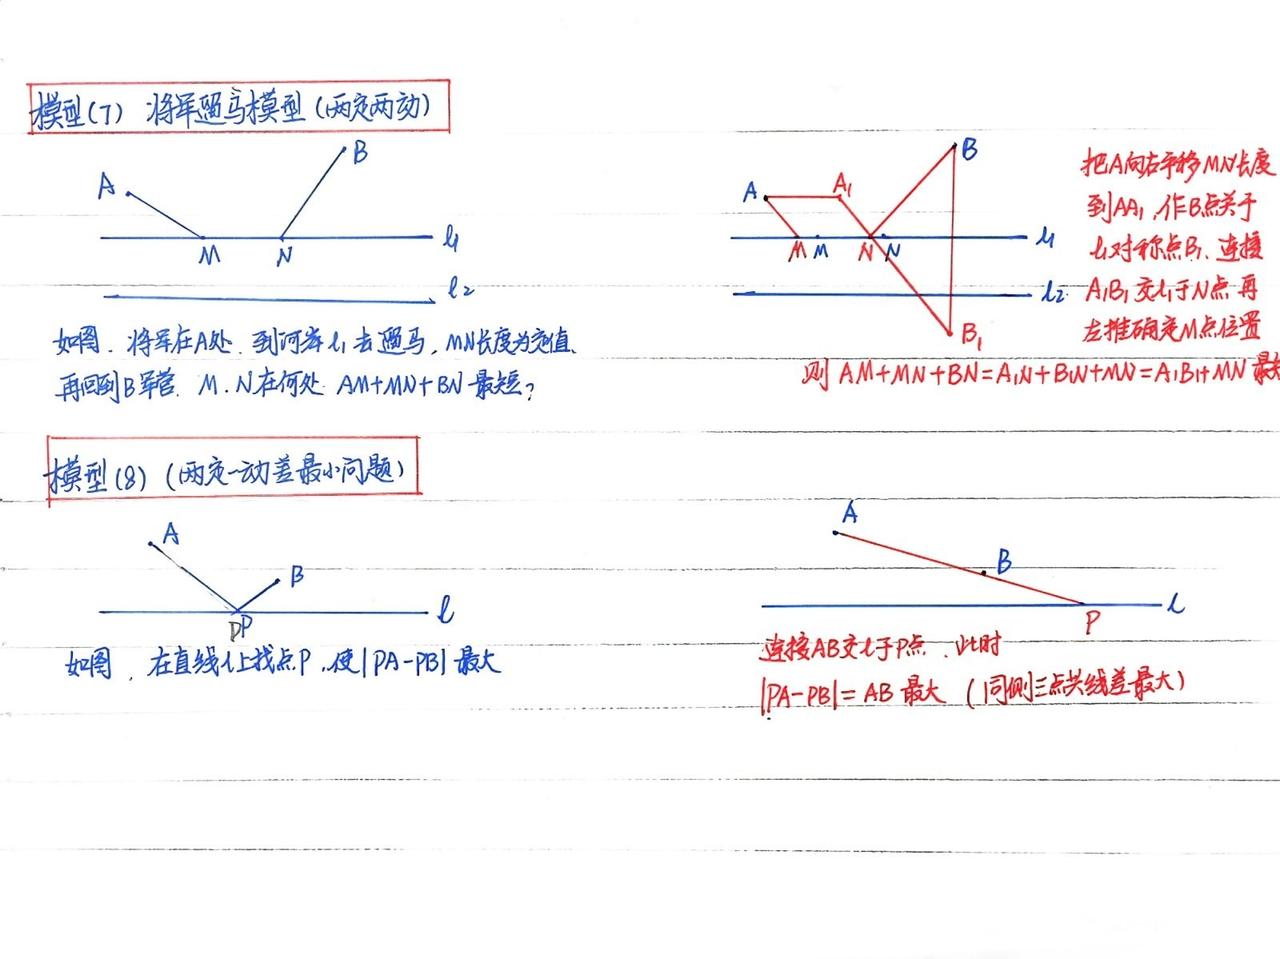 模型(7) 将军遛马模型(两定两动)
A
B
M
N
l₁
l₂
如图、将军在A处、到河岸l₁去遛马，MN长度为定值、
再回到B军营、M、N在何处 AM+MN+BN最短？
A
A₁
B
M
M
N
N
l₁
l₂
B₁
把A向右平移MN长度
到AA₁，作B点关于
l₁对称点B₁、连接
A₁B₁交l₁于N点再
左推确定M点位置
则AM+MN+BN=A₁N+BN+MN=A₁B₁+MN最短
模型(8) (两定一动差最小问题)
A
B
P
P
l
如图、在直线l上找点P、使|PA-PB|最大
A
B
P
l
连接AB交l于P点、此时
|PA-PB|=AB最大 (同侧三点共线差最大)